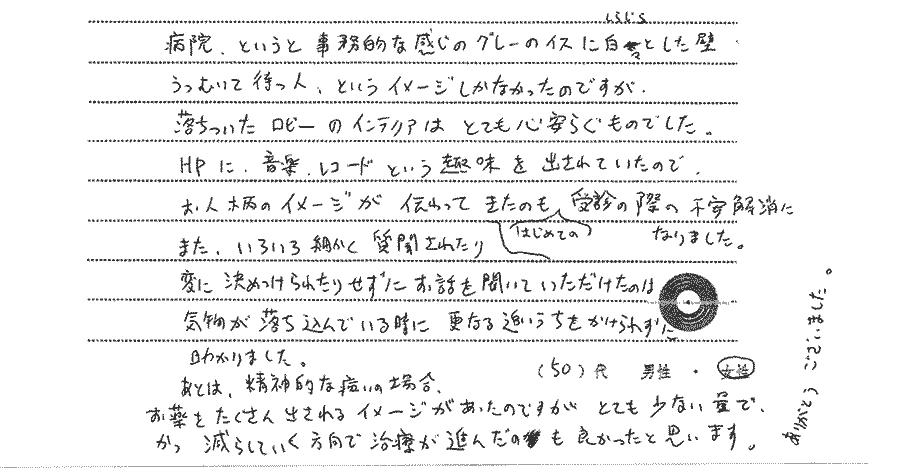 しらじら
病院、というと事務的な感じのグレーのイスに白々とした壁
うつむいて待つ人、というイメージしかなかったのですが、
落ちついたロビーのインテリアはとても心安らぐものでした。
HPに、音楽、レコードという趣味を出されていたので、
お人柄のイメージが伝わってきたのも、受診の際の不安解消に
はじめての
なりました。
また、いろいろ細かく質問されたり
変に決めつけられたりせずにお話を聞いていただけたのは
気持が落ち込んでいる時に更なる追いうちをかけられずに
助かりました。
(50)代 男性・女性
あとは、精神的な病いの場合、
お薬をたくさん出されるイメージがあったのですがとても少ない量で、
かつ減らしていく方向で治療が進んだのも良かったと思います。
ありがとうございました。